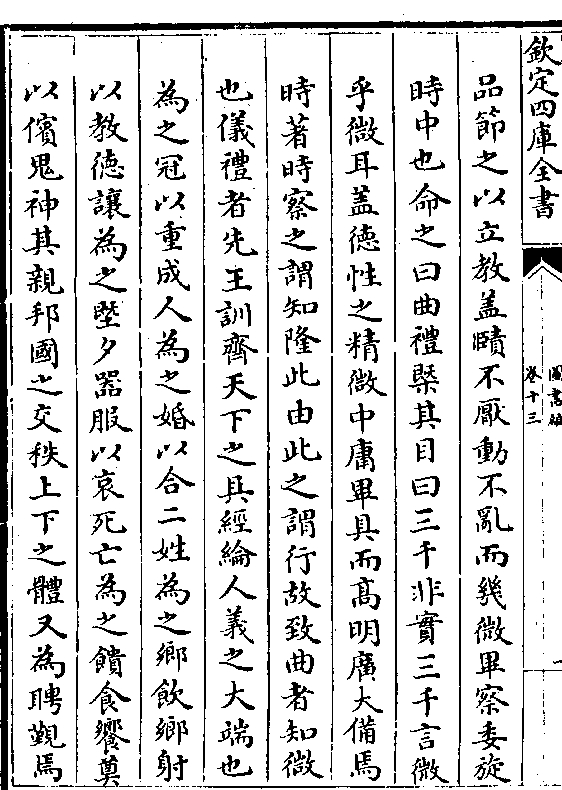 欽定四庫全書
圖書編
卷十三
一
品節之以立教盖賾不厭動不亂而幾微畢察委旋
時中也命之曰曲禮槩其目曰三千非實三千言微
乎微耳盖德性之精微中庸畢具而髙明廣大備焉
時著時察之謂知隆此由此之謂行故致曲者知微
也儀禮者先王訓齊天下之具經綸人義之大端也
為之冠以重成人為之婚以合二姓為之鄉飲鄉射
以教徳讓為之塈夕器服以哀死亡為之饋食饗奠
以儐鬼神其親邦國之交秩上下之體又為聘覲焉